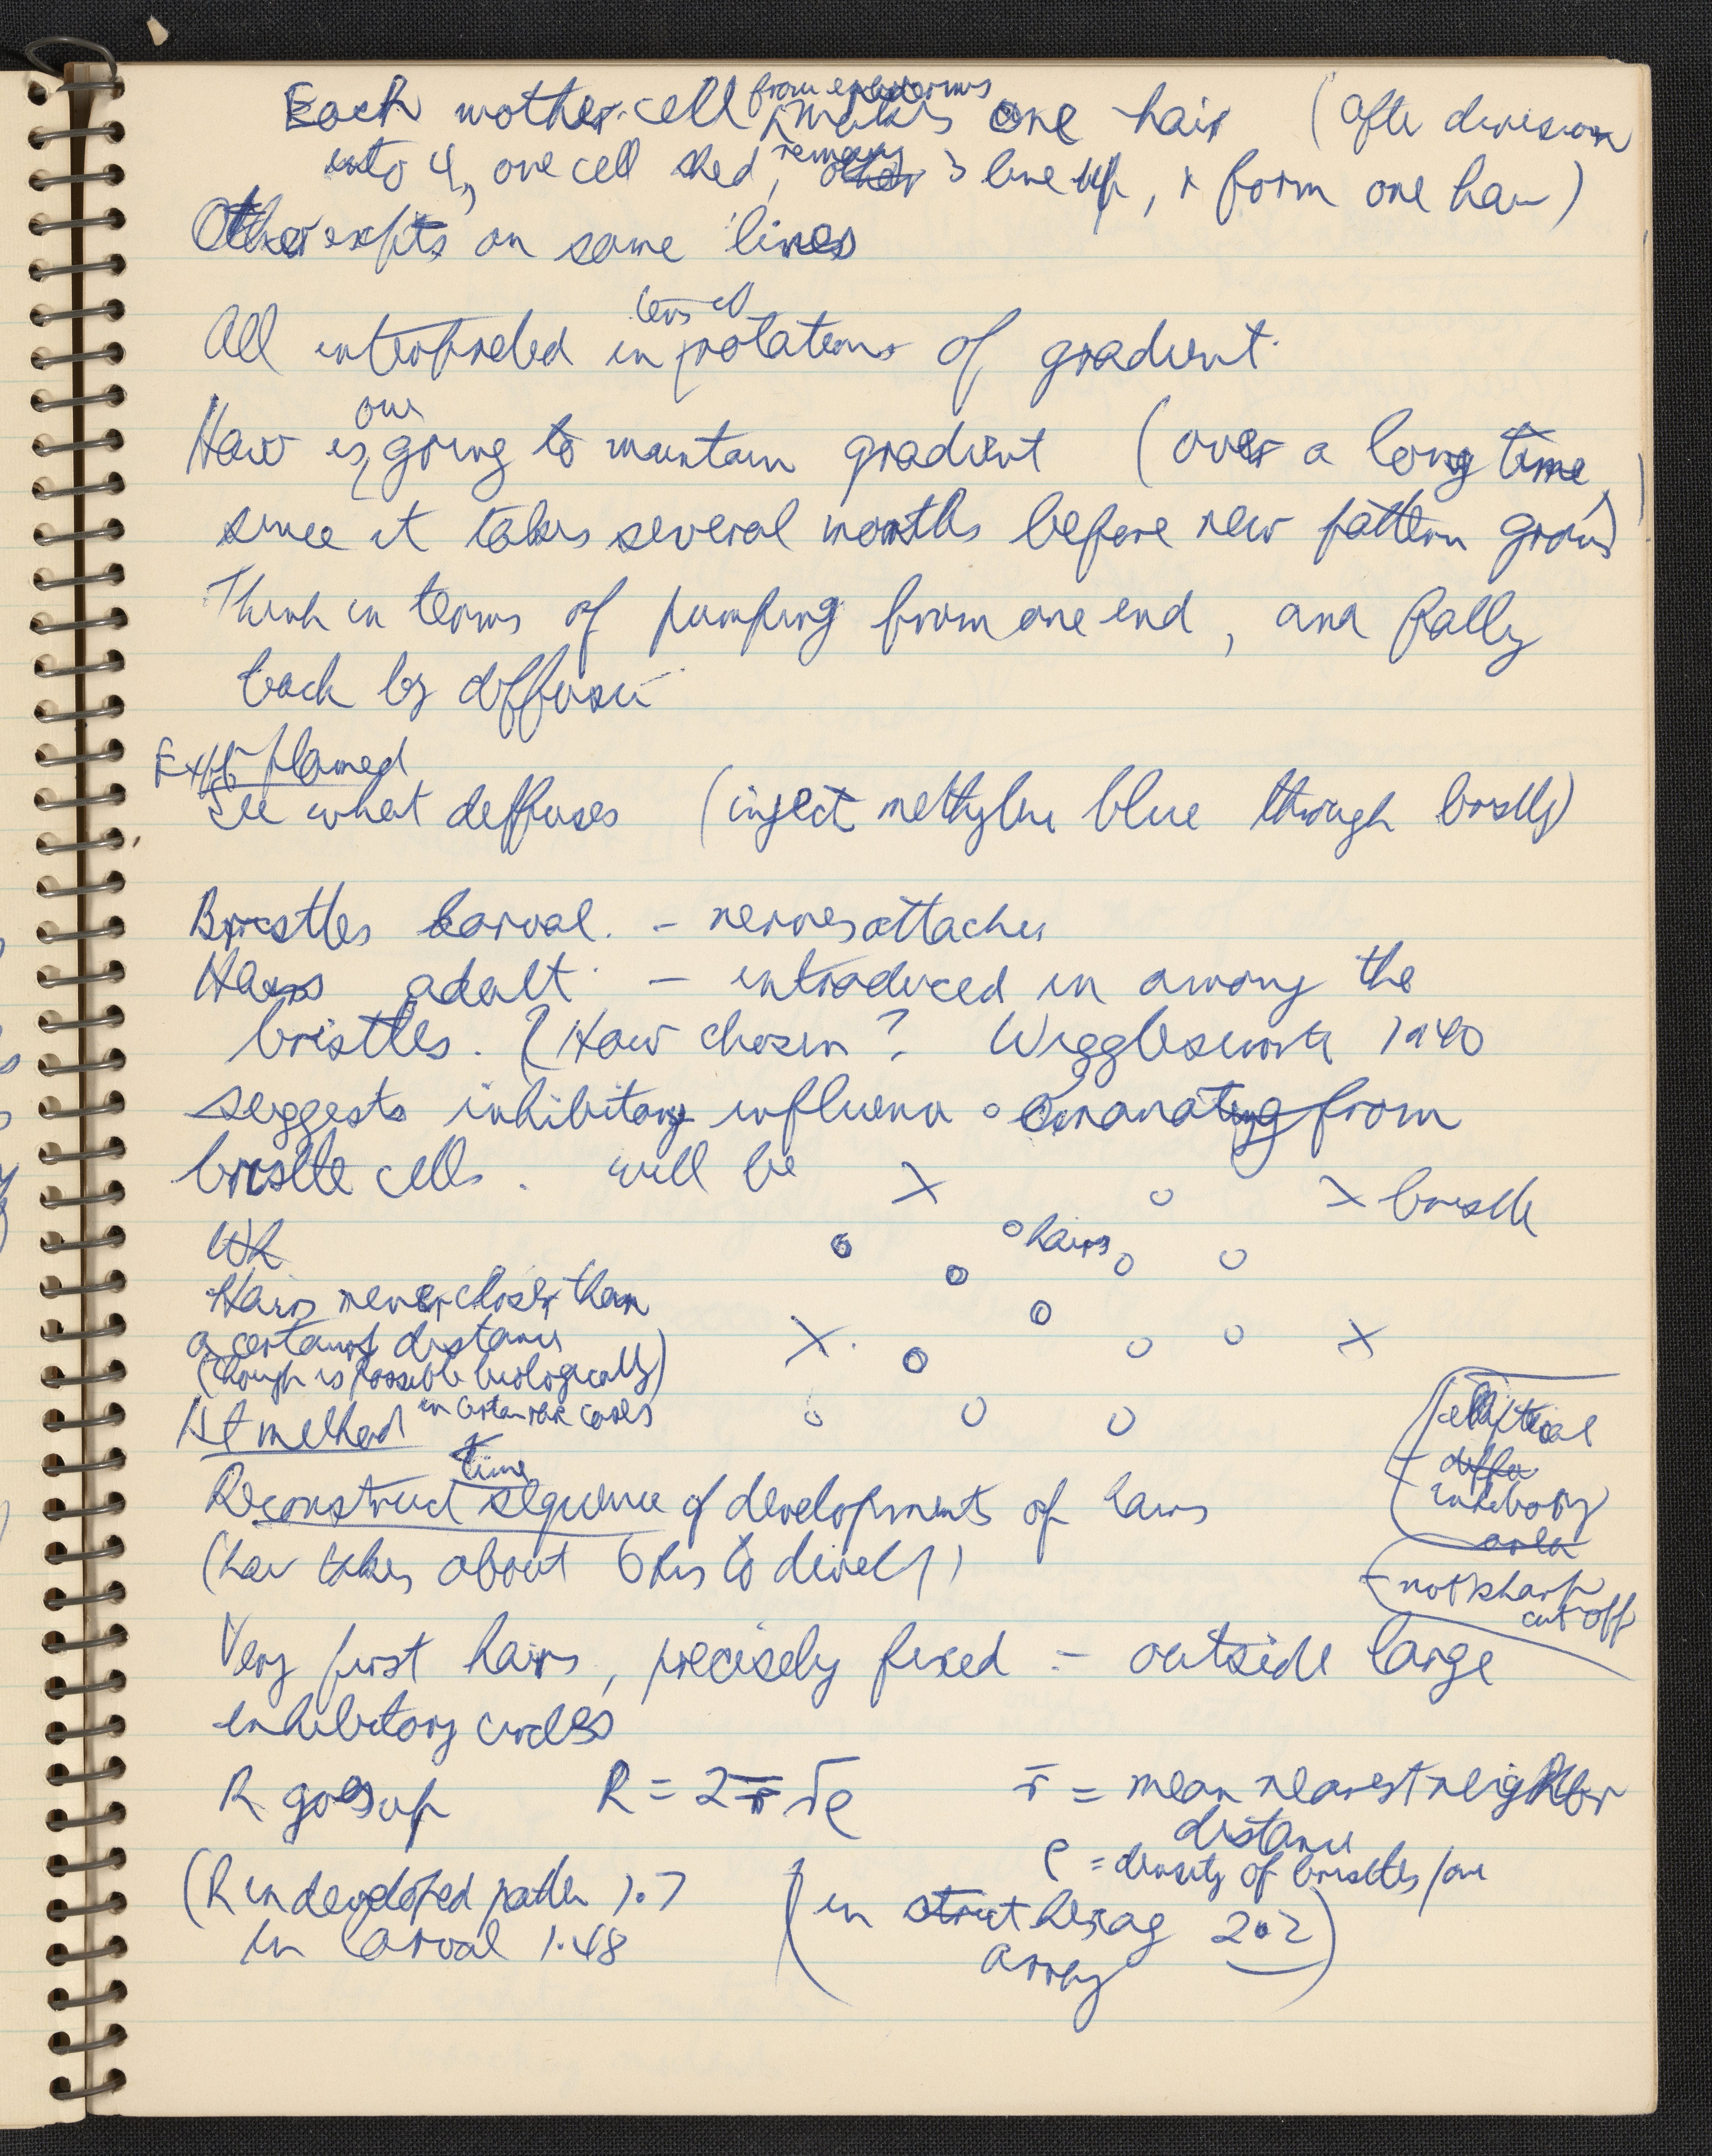 Each mother cell from epidermis makes one hair (after division
into 4, one cell shed, other remaining 3 line up, + form one hair)
Other expts on same lines
All interpreted in terms of rotations of gradient.
How is one going to maintain gradient (over a long time,
since it takes several months before new pattern grows)
Think in terms of pumping from one end, and
back by diffusion
Expt planned
See what diffuses (inject methylene blue through bristle)
Bristles larval. – nerves attached
Hairs adult. – introduced in among the
bristles. (How chosen? Wigglesworth 1940
suggests inhibitory influence emanating from
bristle cells. will be
X o X bristle
Wh
o o hairs o o
o
Hairs never closer than
o
a certain distance
X o o o X
(though is possible biologically
in certain rare cases)
o o o
1st method
elliptical
diffu
inhibitory
area
not sharp
cut off
Reconstruct time sequence of developments of hairs
(hair takes about 6 hrs to develop)
Very first hairs, precisely fixed – outside large
inhibitory circles
R goes up R = 2 r̄ √ρ r̄ = mean nearest neighbor
distance
ρ = density of bristles/
(R in developed pattern 1.7 (in strict hexag 2.2)
in larval 1.48 array